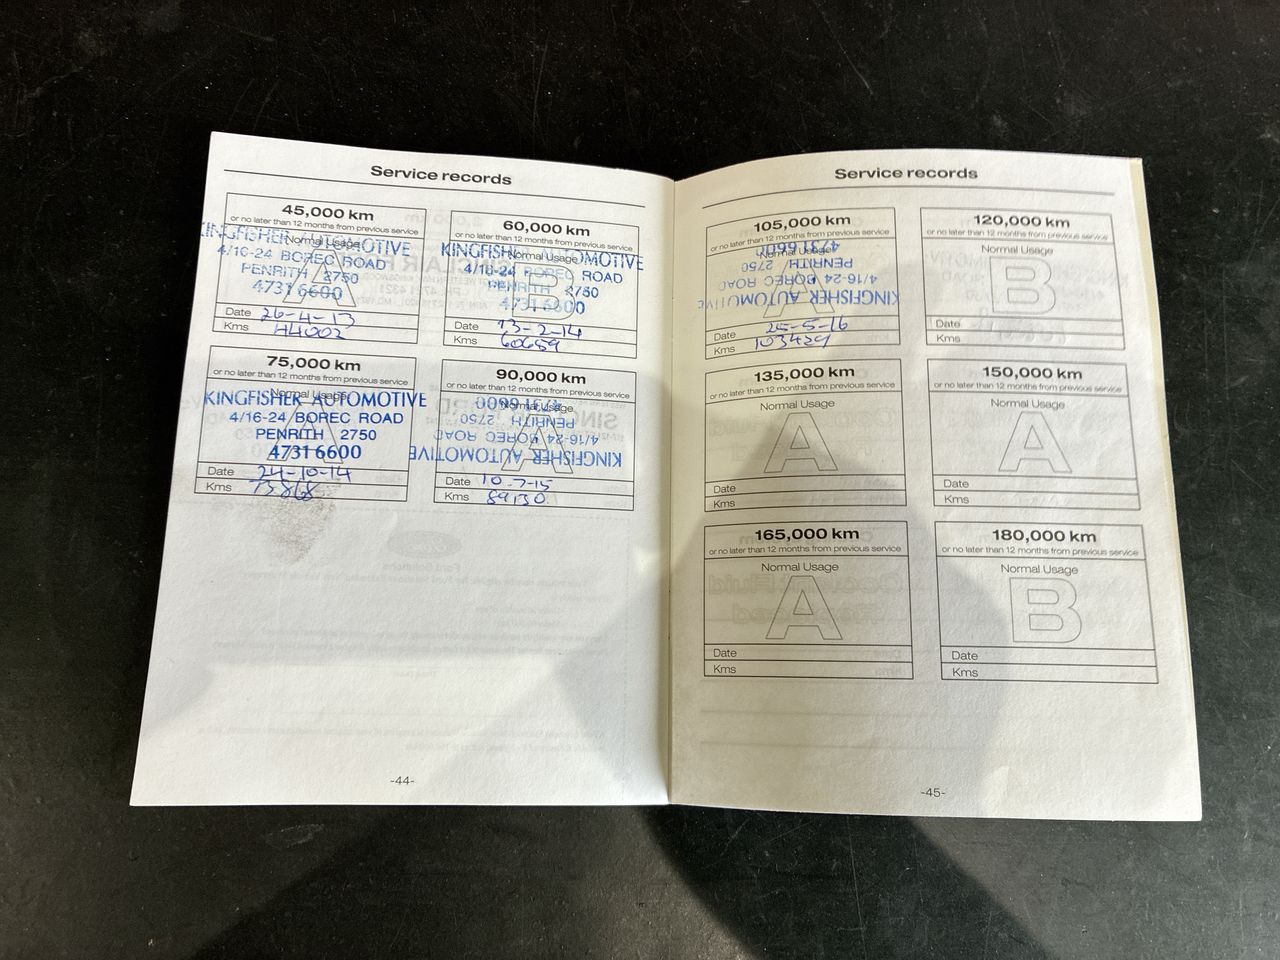 Service records
45,000 km
or no later than 12 months from previous service
Normal Usage
KINGFISHER AUTOMOTIVE
4/16-24 BOREC ROAD
PENRITH 2750
4731 6600
A
Date 26-4-13
Kms 44002
60,000 km
or no later than 12 months from previous service
Normal Usage
KINGFISHER AUTOMOTIVE
4/16-24 BOREC ROAD
PENRITH 2750
4731 6600
B
Date 13-2-14
Kms 60659
75,000 km
or no later than 12 months from previous service
Normal Usage
KINGFISHER AUTOMOTIVE
4/16-24 BOREC ROAD
PENRITH 2750
4731 6600
A
Date 24-10-14
Kms 73868
90,000 km
or no later than 12 months from previous service
Normal Usage
KINGFISHER AUTOMOTIVE
4/16-24 BOREC ROAD
PENRITH 2750
4731 6600
A
Date 10-7-15
Kms 89130
-44-
Service records
105,000 km
or no later than 12 months from previous service
Normal Usage
KINGFISHER AUTOMOTIVE
4/16-24 BOREC ROAD
PENRITH 2750
4731 6600
A
Date 25-5-16
Kms 103429
120,000 km
or no later than 12 months from previous service
Normal Usage
B
Date
Kms
135,000 km
or no later than 12 months from previous service
Normal Usage
A
Date
Kms
150,000 km
or no later than 12 months from previous service
Normal Usage
A
Date
Kms
165,000 km
or no later than 12 months from previous service
Normal Usage
A
Date
Kms
180,000 km
or no later than 12 months from previous service
Normal Usage
B
Date
Kms
-45-